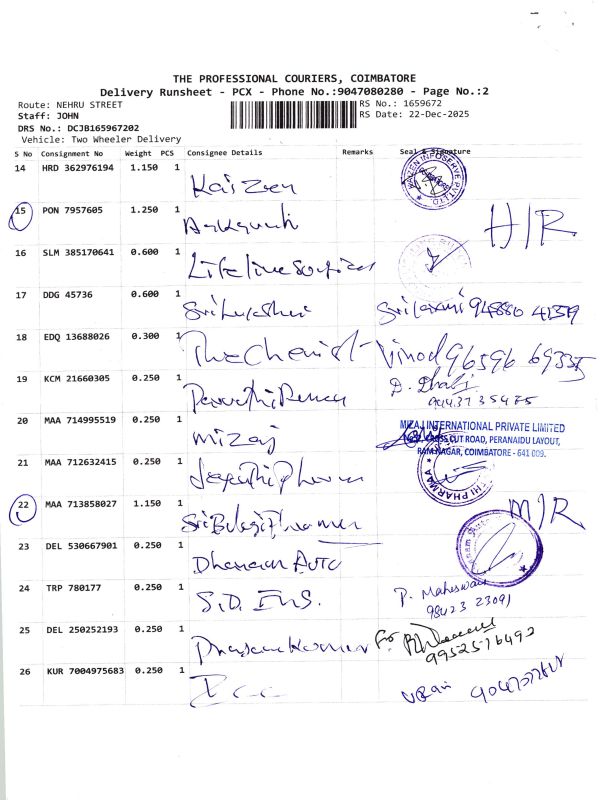 THE PROFESSIONAL COURIERS, COIMBATORE
Delivery Runsheet - PCX - Phone No.:9047080280 - Page No.:2
Route: NEHRU STREET
RS No.: 1659672
Staff: JOHN
RS Date: 22-Dec-2025
DRS No.: DCJB165967202
Vehicle: Two Wheeler Delivery
S No Consignment No Weight PCS Consignee Details Remarks Seal & Signature
14 HRD 362976194 1.150 1 Kaizen
15 PON 7957605 1.250 1 H/R
16 SLM 385170641 0.600 1 Lifeline Services
17 DDG 45736 0.600 1
18 EDQ 13688026 0.300 1 The Chemist Vinod 96596 69335
19 KCM 21660305 0.250 1
20 MAA 714995519 0.250 1 Mizaj
MIZAJ INTERNATIONAL PRIVATE LIMITED
CROSS CUT ROAD, PERANAIDU LAYOUT,
RAM NAGAR, COIMBATORE - 641 009.
21 MAA 712632415 0.250 1
22 MAA 713858027 1.150 1 M/R
23 DEL 530667901 0.250 1 Auto
24 TRP 780177 0.250 1 S.D. Ens. P. Maheswari
98423 23091
25 DEL 250252193 0.250 1 For
9952576492
26 KUR 7004975683 0.250 1